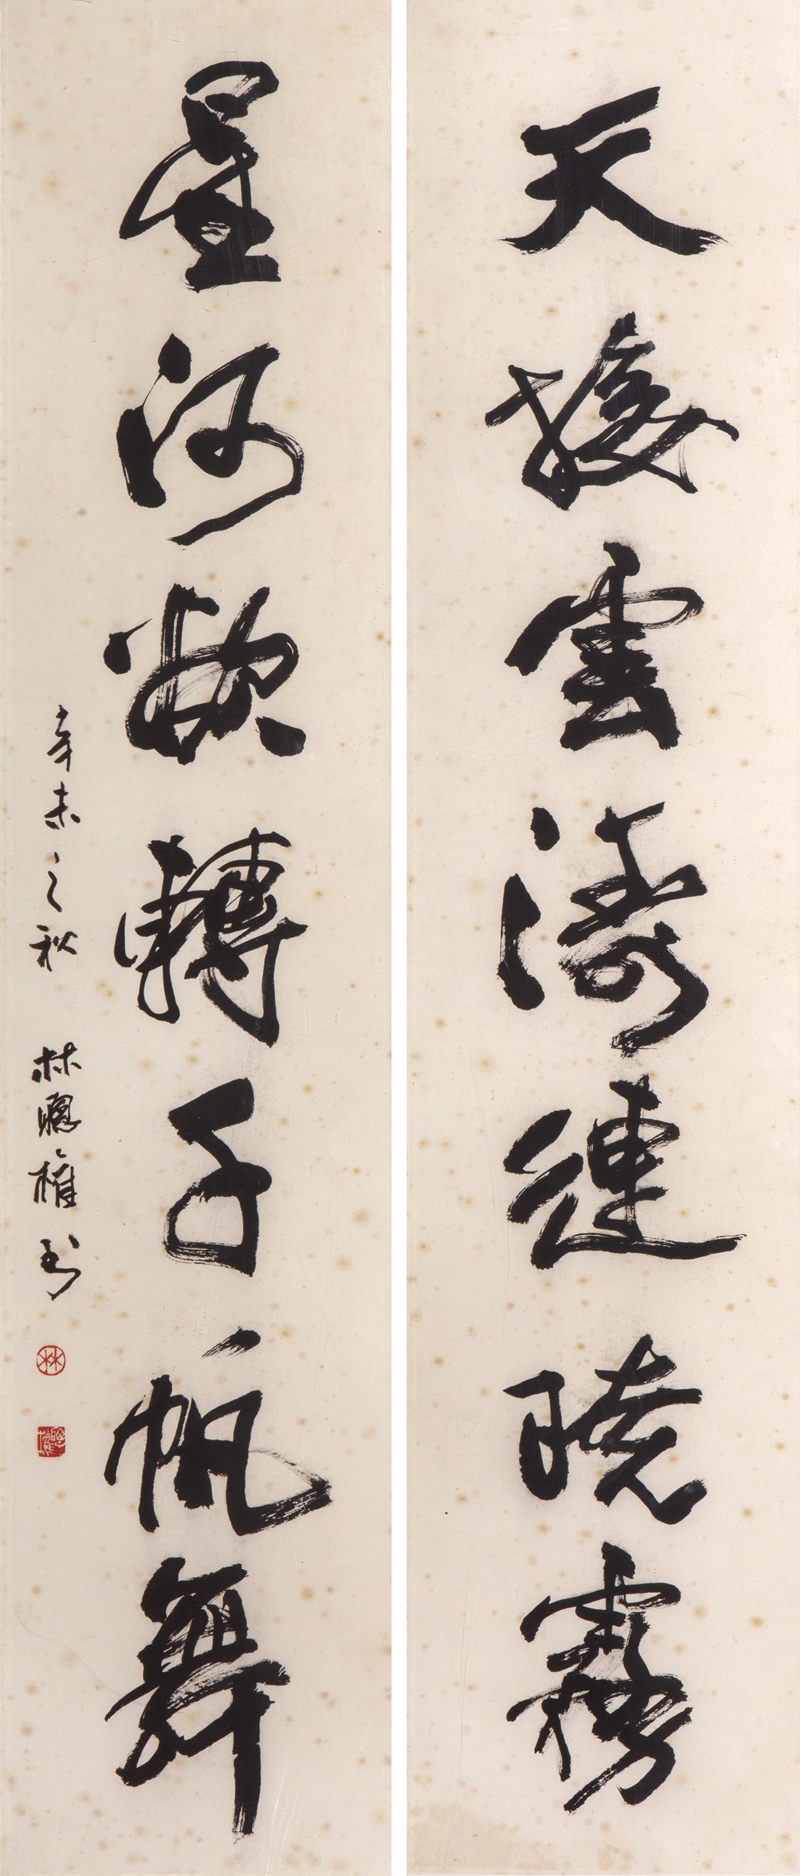 天接雲濤連曉霧
星河欲轉千帆舞
辛未之秋 林聰權書
林
聰權